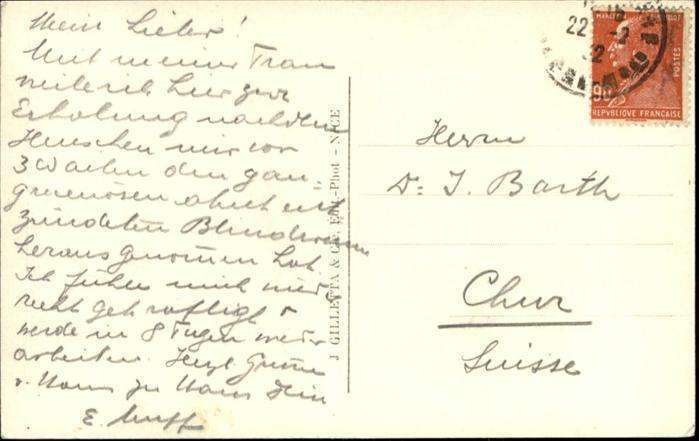 Mein Lieber!
Mit meiner Frau
weile ich hier zur
Erholung nachdem
Henschen mir vor
3 Wochen den gan
grenösen akut ent
zündeten Blinddarm
heraus genommen hat.
Ich fühle mich wieder
recht gekräftigt &
werde in 8 Tagen wieder
arbeiten. Herzl Grüsse
v. Haus zu Haus Dein
E.
J. GILLETTA & Cie, Edit.-Phot - NICE
22
90
POSTES
REPVBLIQVE FRANÇAISE
Herrn
Dr J. Barth
Chur
Suisse